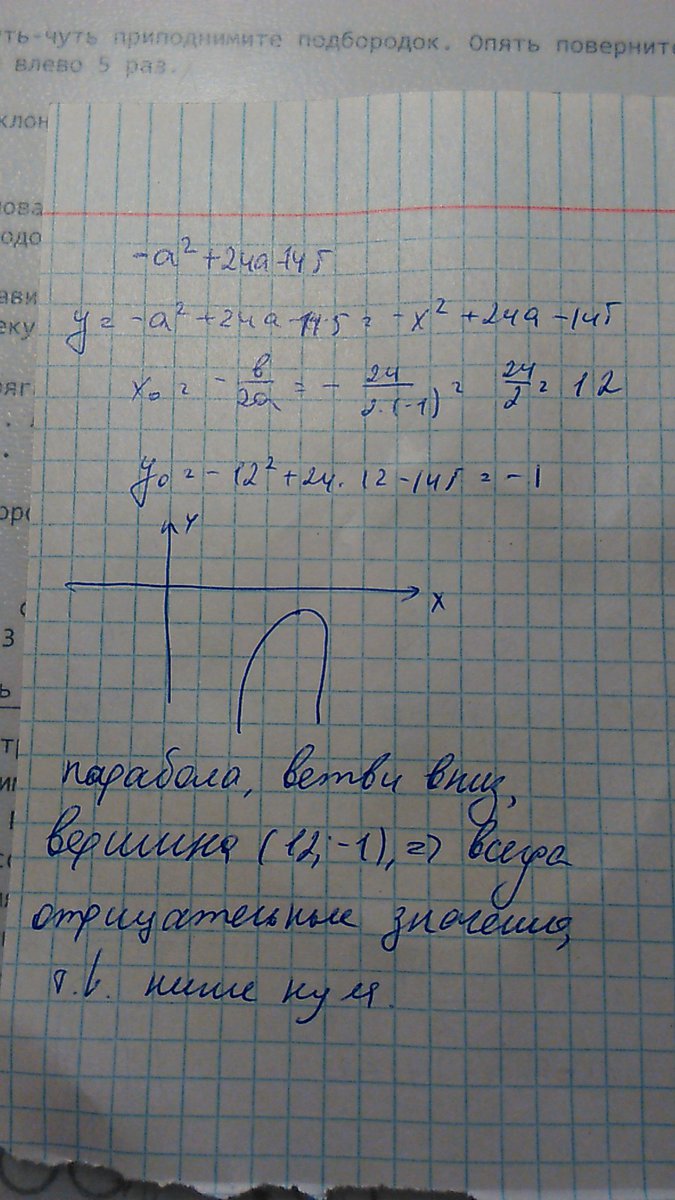 уть-чуть приподнимите подбородок. Опять поверните
влево 5 раз.
-a² + 24a - 145
y = -a² + 24a - 145 = -x² + 24a - 145
x₀ = - в/2a = - 24/2·(-1) = 24/2 = 12
y₀ = -12² + 24·12 - 145 = -1
Y
X
парабола, ветви вниз,
вершина (12; -1), => всегда
отрицательные значения,
т.к. ниже нуля.